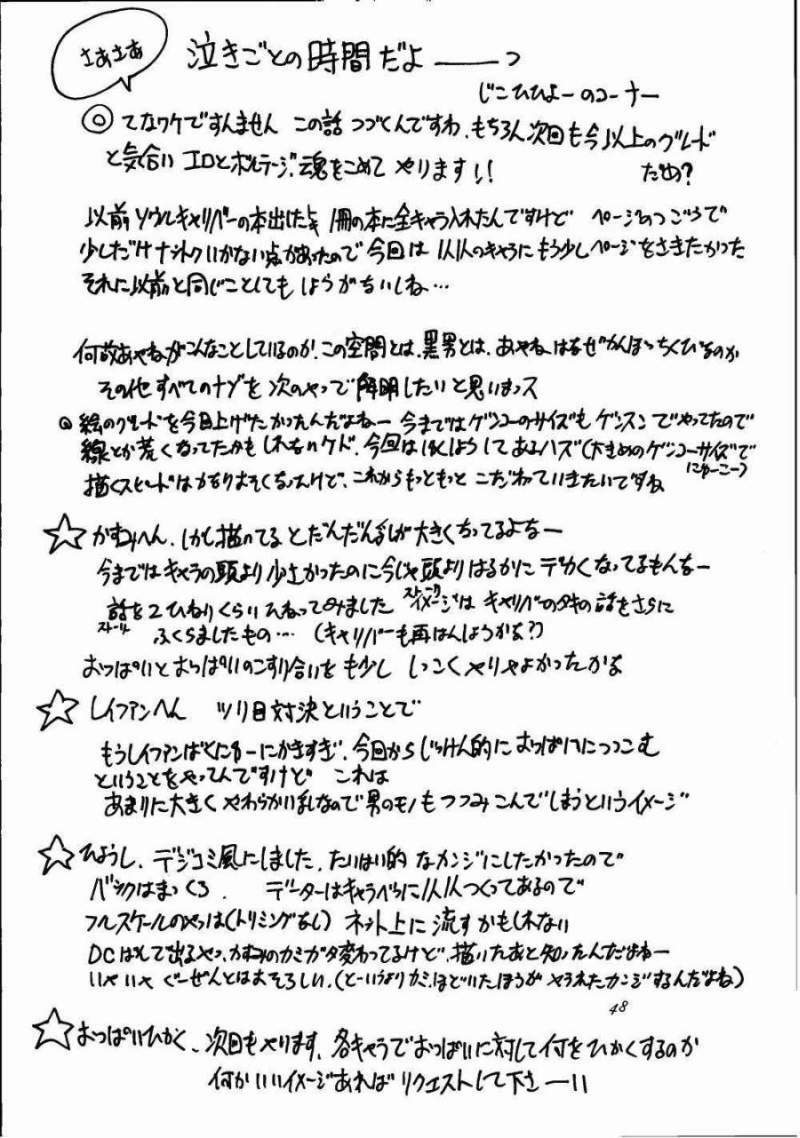 さぁさぁ
泣きごとの時間だよ——っ
じこひひょーのコーナー
◎ てなワケですんません この話 つづくんですわ、もちろん次回も今以上のグレード
と気合い エロとボルテージ、魂をこめて やります!! だめ?
以前ソウルキャリバーの本出した 1冊の本に全キャラ入れたんですけど ページのつごうで
少しだけナットクいかない点があったので今回は 1人1人のキャラにもう少しページをさきたかった
それに以前と同じことしても しょうがないしね…
何故あやねがこんなことしているのか、この空間とは、黒男とは、あやねはなぜ
その他 すべてのナゾを次のやつで解明したいと思いまっス
◎ 絵のグレードを今回上げたかったんだよねー 今まではゲンコーのサイズも ゲンスンでやってたので
線とか荒くなってたかもしれないケド、今回は してあるハズ(大きめのゲンコーサイズで
描くスピードはかなりおそくなったけど、これからもっともっと こだわっていきたいですね にゅーこー)
☆ かすみへん、しかし描いてるとだんだん乳が大きくなってるよなー
今まではキャラの頭より少さかったのに今じゃ頭よりはるかに デカくなってるもんなー
話を2ひねりくらいひねってみました イメージは キャリバーのタキの話をさらに
ストーリー
ふくらましたもの… (キャリバーも再はんしようかな?)
おっぱいとおっぱいのこすり合いを も少し しつこくやりゃよかったかな
☆ レイファンへん ツリ目対決ということで
もうレイファンばくにゅーにかきすぎ、今回からじっけん的におっぱいにつつこむ
ということをやってんですけど これは
あまりに大きく やわらかい乳なので男のモノもつつみこんでしまうというイメージ
☆ ひょうし、デジコミ風にしました、たいはい的 なカンジにしたかったので
バックはまっくろ、 データーはキャラべつに1人1人つくってあるので
フルスケールのやつは(トリミングなし) ネット上に流すかもしれない
DC 出るやつ、かすみのカミガタ変わってるけど、描いたあと知ったんだよねー
いやいや ぐーぜんとはおそろしい、(とーいうよりカミ、ほどいたほうが やられたカンジするんだよね)
48
☆ おっぱいひかく、次回もやります、各キャラでおっぱいに対して何をひかくするのか
何かいいイメージあれば リクエストして下さーい